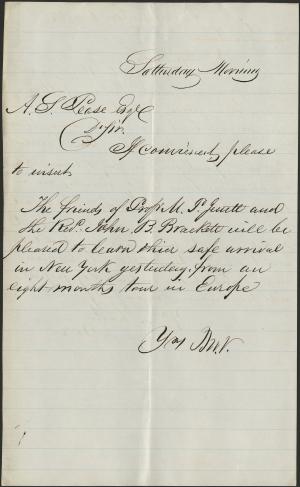 Satturday Morning
A. S. Pease Esqr
D/Sir.
If convinient, please
to insert
The friends of Prof. M. P. Jewett and
the Revd. John B. Brackett will be
pleased to learn thier safe arrival
in New York yesterday. from an
eight months tour in Europe